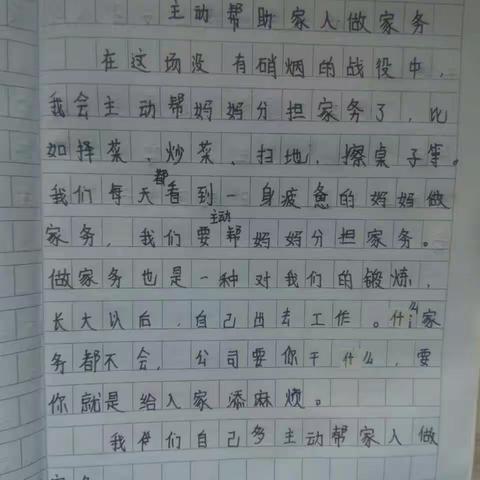 主动帮助家人做家务
在这场没有硝烟的战役中，
我会主动帮妈妈分担家务了，比
如择菜、炒菜、扫地、擦桌子等。
我们每天都看到一身疲惫的妈妈做
家务，我们要主动帮妈妈分担家务。
做家务也是一种对我们的锻炼，
长大以后，自己出去工作。什么家
务都不会，公司要你干什么，要
你就是给人家添麻烦。
我们自己多主动帮家人做
家务